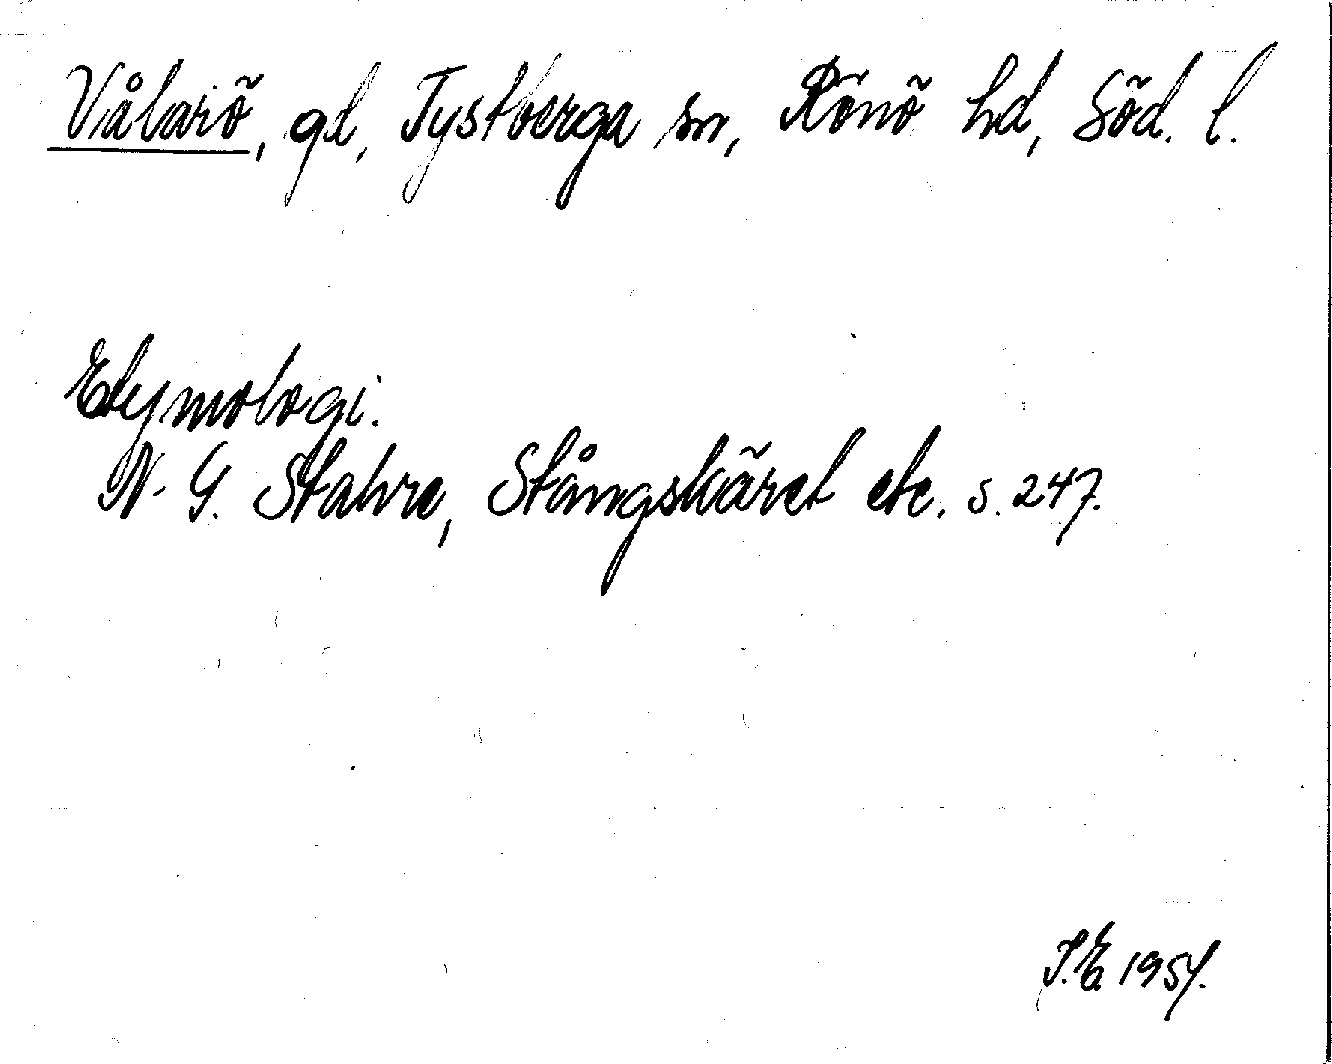 Vålarö, gd, Tystberga sn, Rönö hd, Söd. l.
Etymologi.
N. G. Stahre, Stångskäret etc. s. 247.